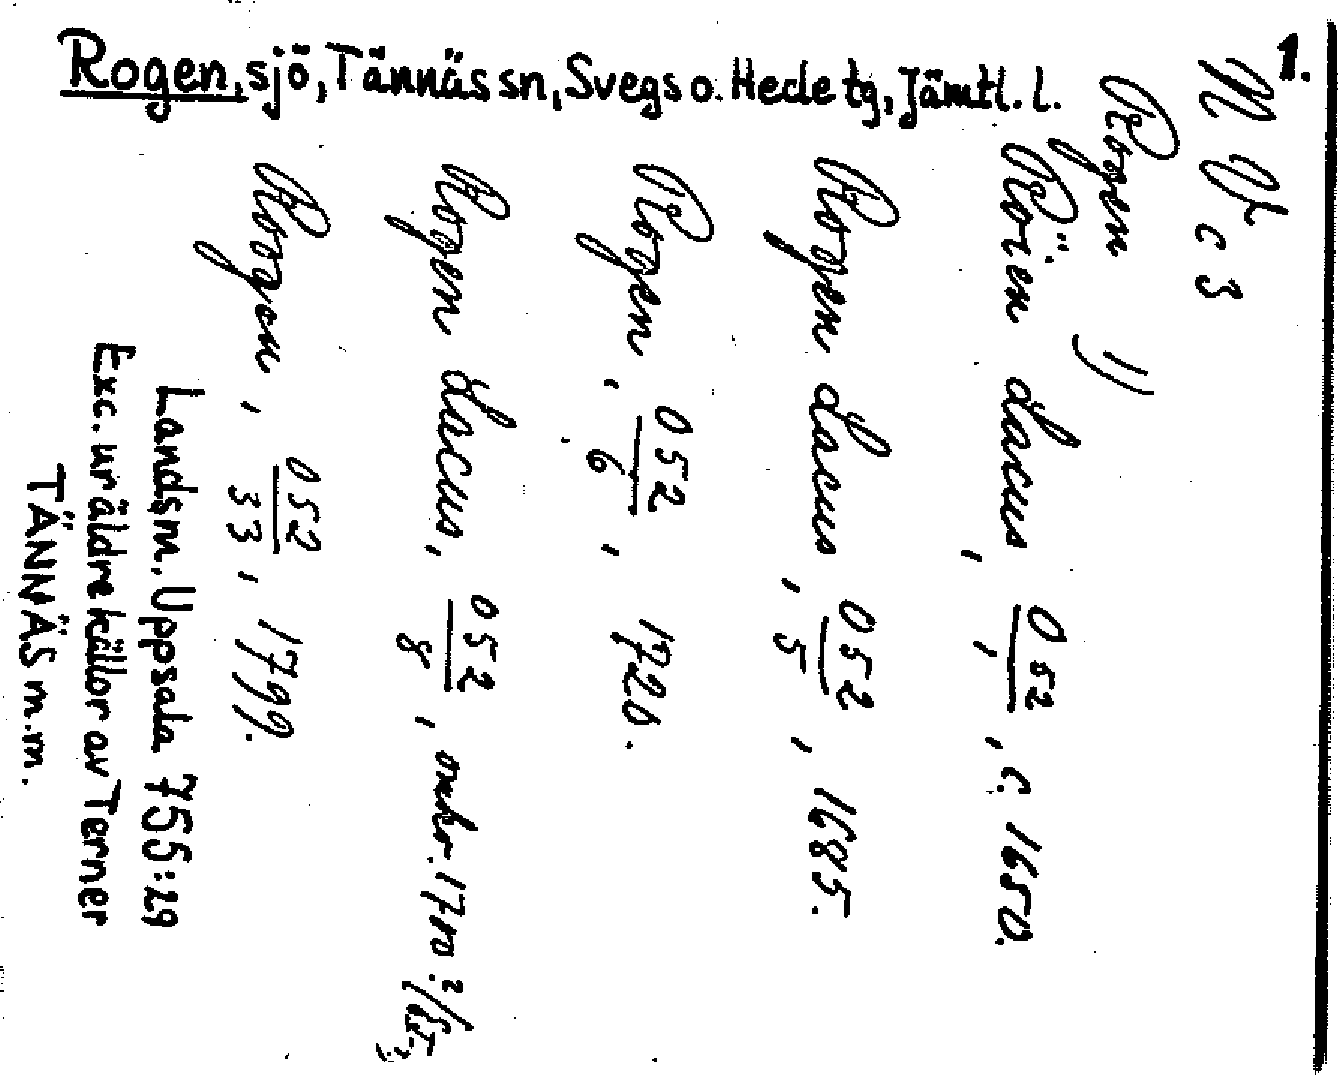 1.
Rogen, sjö, Tännäs sn, Svegs o. Hede tg, Jämtl. l.
M V c 3
Rogen 1)
Röien Lacus, 052/1, c. 1650.
Rogen Lacus, 052/5, 1685.
Rogen, 052/6, 1720.
Rogen Lacus, 052/8, omkr. 1710?
Roogen, 052/33, 1799.
Landsm. Uppsala 755:29
Exc. ur äldre källor av Terner
TÄNNÄS m.m.